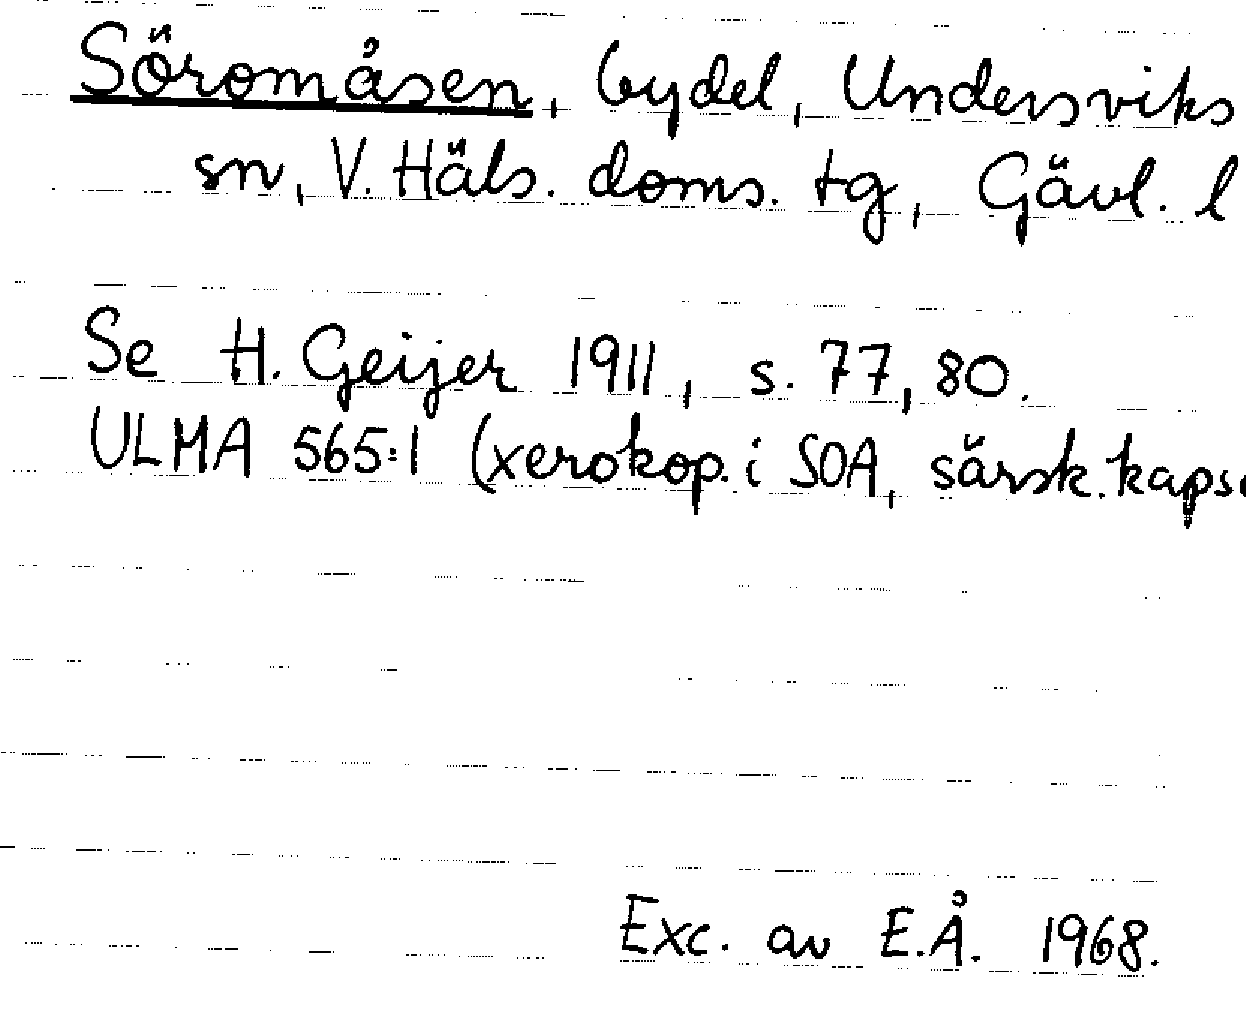 Söromåsen, bydel, Undersviks
sn, V. Häls. doms. tg, Gävl. l
Se H. Geijer 1911, s. 77, 80.
ULMA 565:1 (xerokop. i SOA, särsk. kaps
Exc. av E.Å. 1968.